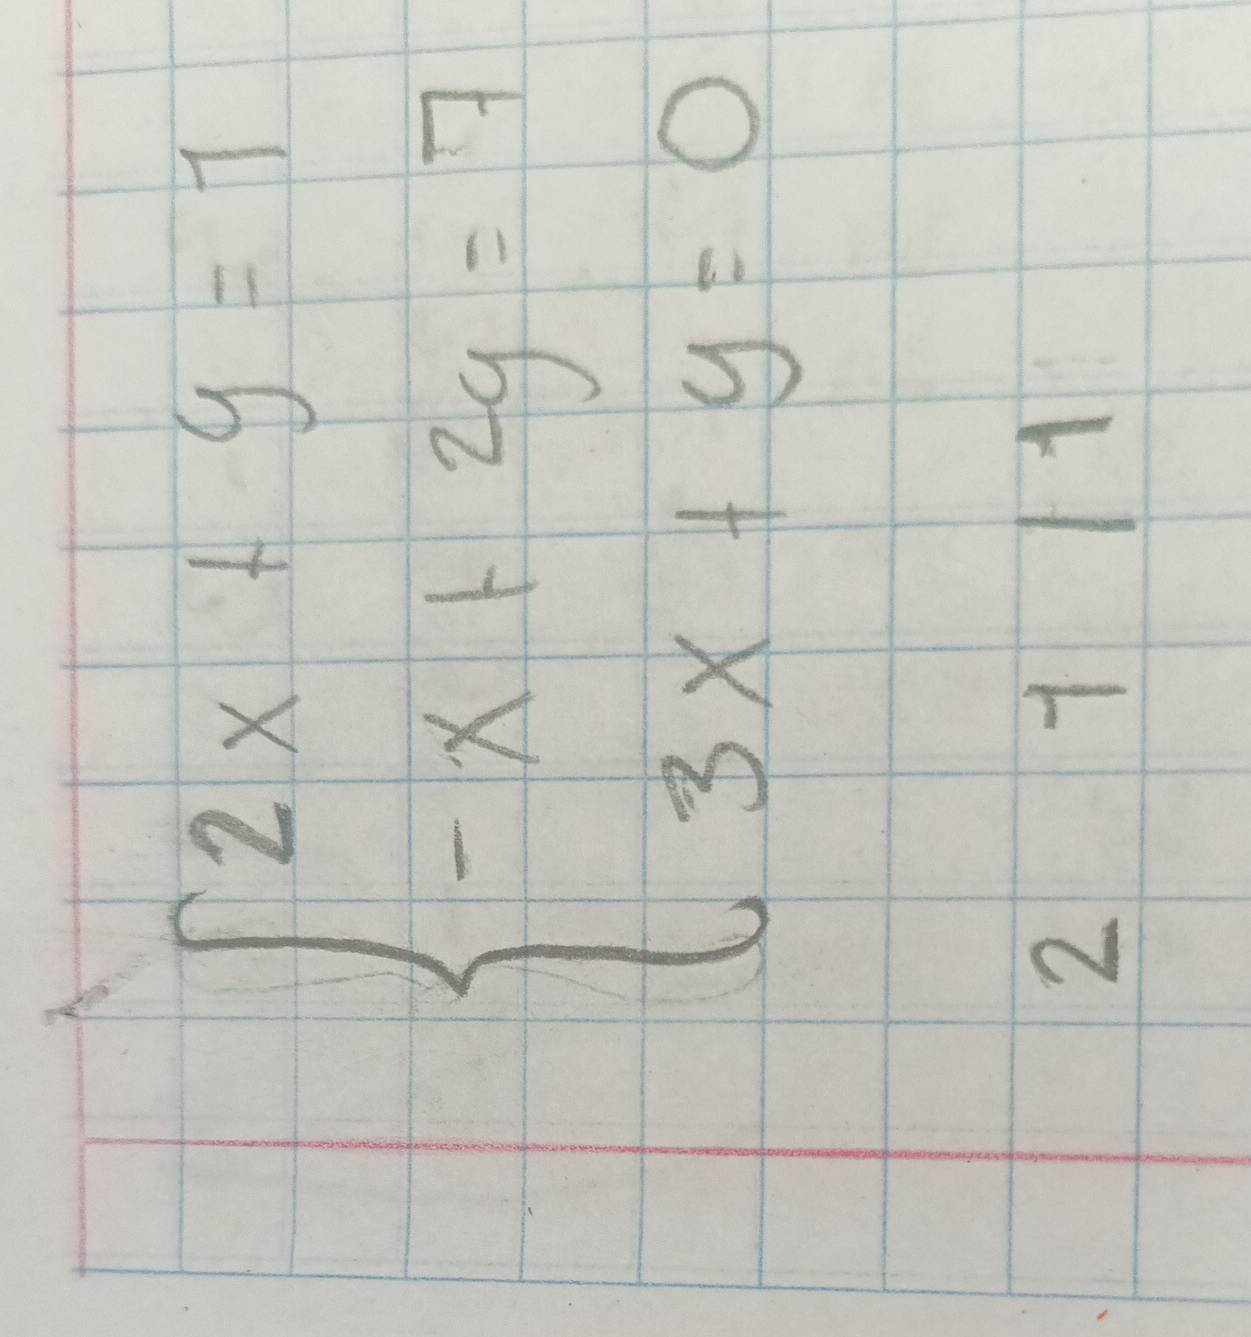 2x + y = 1
-x + 2y = 7
3x + y = 0
2 1 | 1